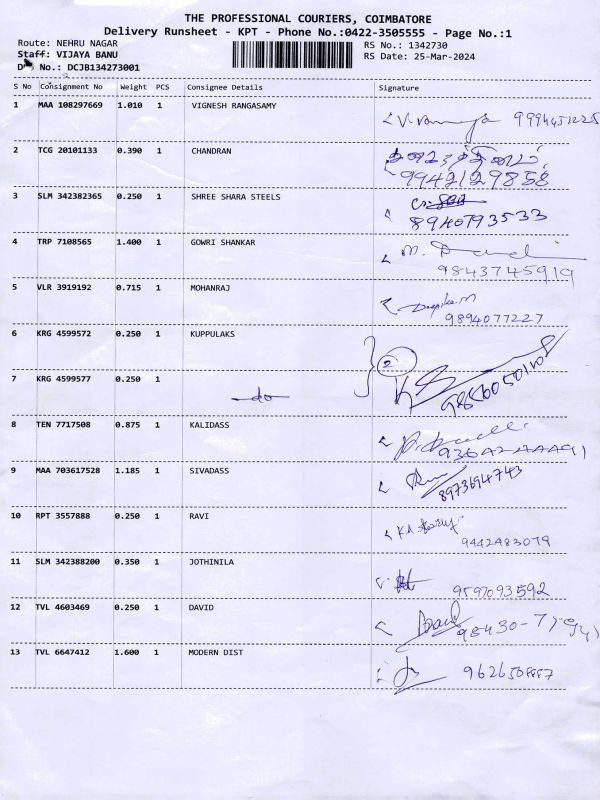 THE PROFESSIONAL COURIERS, COIMBATORE
Delivery Runsheet - KPT - Phone No.:0422-3505555 - Page No.:1
Route: NEHRU NAGAR
RS No.: 1342730
Staff: VIJAYA BANU
RS Date: 25-Mar-2024
No.: DCJB134273001
S No Consignment No Weight PCS Consignee Details Signature
1 MAA 108297669 1.010 1 VIGNESH RANGASAMY
2 TCG 20101133 0.390 1 CHANDRAN 9942129858
3 SLM 342382365 0.250 1 SHREE SHARA STEELS 8940793533
4 TRP 7108565 1.400 1 GOWRI SHANKAR 9843745919
5 VLR 3919192 0.715 1 MOHANRAJ Deepika.M 9894077227
6 KRG 4599572 0.250 1 KUPPULAKS 2
7 KRG 4599577 0.250 1 -do-
8 TEN 7717508 0.875 1 KALIDASS
9 MAA 703617528 1.185 1 SIVADASS 8973694743
10 RPT 3557888 0.250 1 RAVI 9442483079
11 SLM 342388200 0.350 1 JOTHINILA 9597093592
12 TVL 4603469 0.250 1 DAVID
13 TVL 6647412 1.600 1 MODERN DIST